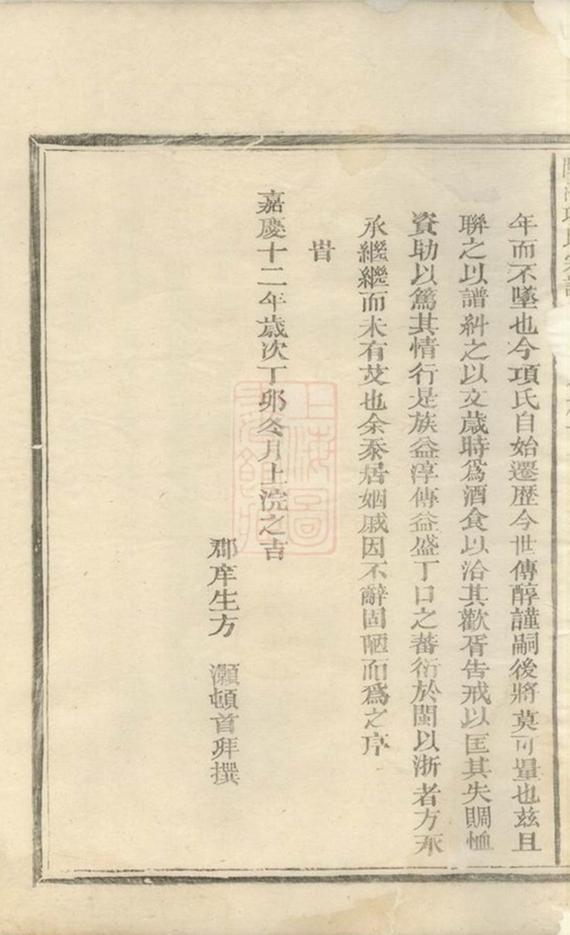 年而不墜也今項氏自始遷歷今世傳醇謹嗣後將莫可量也茲且
聯之以譜糾之以文歲時爲酒食以洽其歡胥告戒以匡其失賙恤
資助以篤其情行是族益淳傳益盛丁口之蕃衍於閩以浙者方承
承繼繼而未有艾也余忝居姻戚因不辭固陋而爲之序
旹
嘉慶十二年歲次丁卯冬月上浣之吉
郡庠生方 灝頓首拜撰
上海圖
書館藏